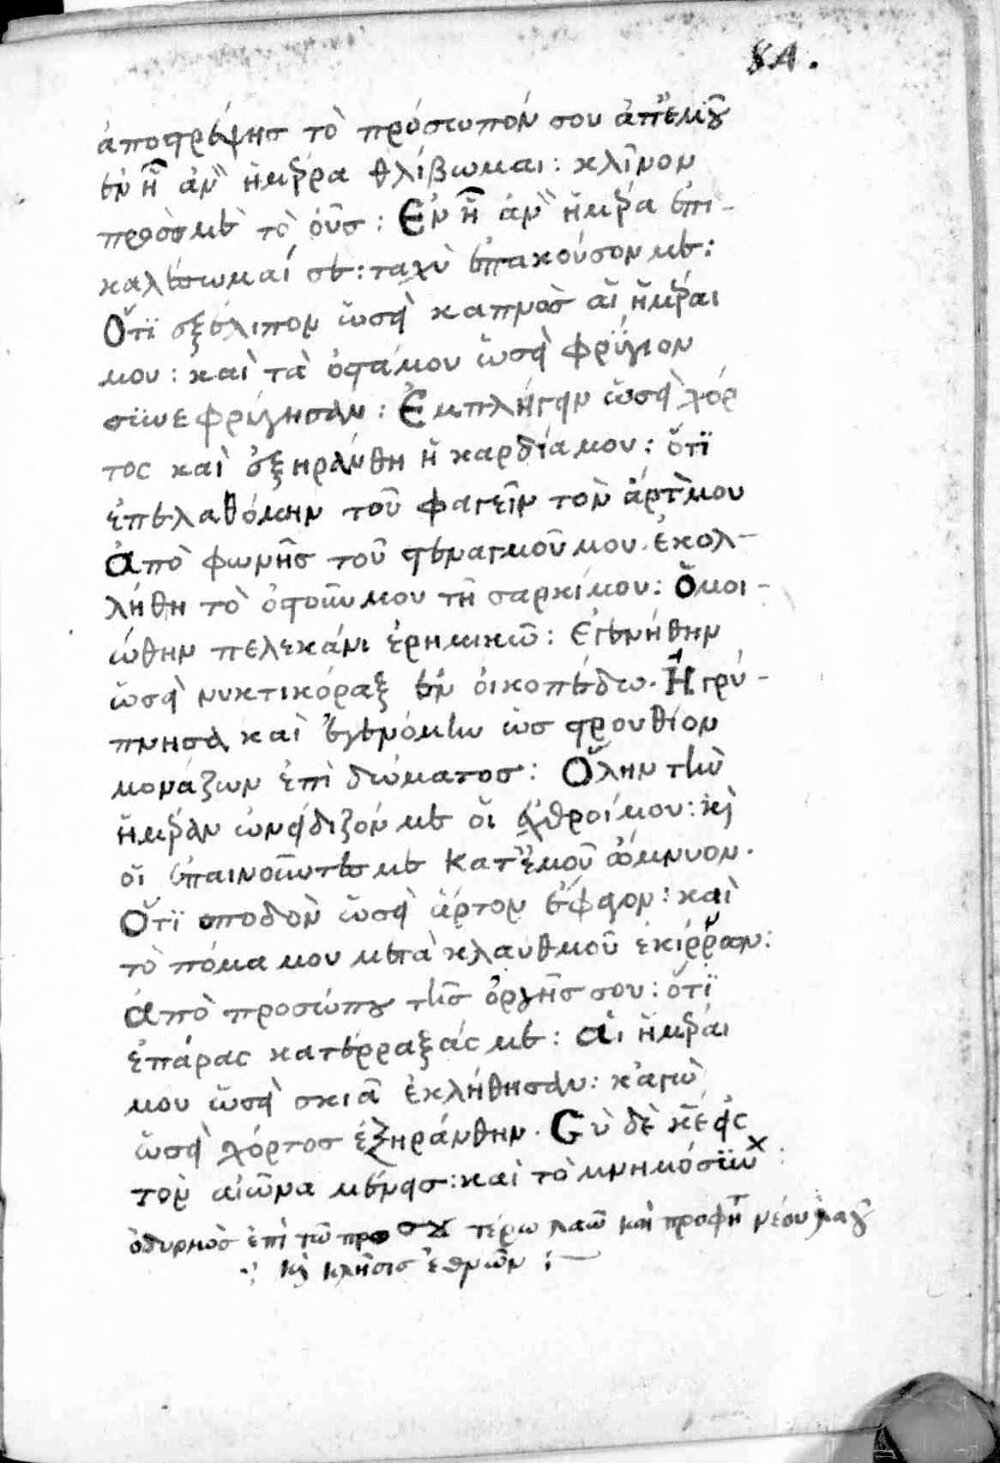 84.
ἀποστρέψησ τὸ πρόσωπόν σου ἀπ ἐμοῦ
ἐν ἧ ἀν ἡμέρα θλίβωμαι : κλῖνον
πρόσ με τὸ οὖσ : Ἐν ἧ ἀν ἡμέρα ἐπι-
καλέσωμαί σε : ταχὺ ἐπακούσον με :
Ὅτϊ ἐξέλιπον ὡσεὶ καπνὸσ αἱ ἡμέραι
μου : καὶ τὰ ὀστά μου ὡσεὶ φρύγιον
συνεφρύγησαν : Ἐπλήγην ὡσεὶ χόρ
τος καὶ ἐξηράνθη ἡ καρδία μου : ὅτϊ
ἐπελαθόμην τοῦ φαγεῖν τὸν ἄρτον μου
Ἀπὸ φωνῆσ τοῦ στεναγμοῦ μου . ἐκολ-
λήθη τὸ ὀστοῦν μου τῆ σαρκί μου : Ὁμοι-
ώθην πελεκάνι ἐρημικῶ : ἐγενήθην
ὡσεὶ νυκτικόραξ ἐν οἰκοπέδω . Ἠγρύ-
πνησα καὶ ἐγενόμην ὡσ στρουθίον
μονάζων ἐπὶ δώματοσ : Ὅλην τὴν
ἡμέραν ὠνείδιζόν με οἱ ἐχθροί μου : κὶ
οἱ ἐπαινοῦντές με κατ ἐμοῦ ὤμνυον .
Ὅτϊ σποδὸν ὡσεὶ ἄρτον ἔφαγον : καὶ
τὸ πόμα μου μετὰ κλαυθμοῦ ἐκίρρων :
ἀπὸ προσώπου τῆσ ὀργῆσ σου : ὅτϊ
ἐπάρας κατέρραξάς με : αἱ ἡμέραι
μου ὡσεὶ σκιὰ ἐκλήθησαν : κἀγὼ
ὡσεὶ χόρτοσ ἐξηράνθην . Σὺ δὲ κ̅ε̅ εἰς
τὸν αἰῶνα μένεισ : καὶ τὸ μνημόσϋν :
ὀδυρμὸσ ἐπὶ τῶ προτέρω λαῶ καὶ προφητ νέου λαοῦ
κὶ κλῆσισ ἐθνῶν :